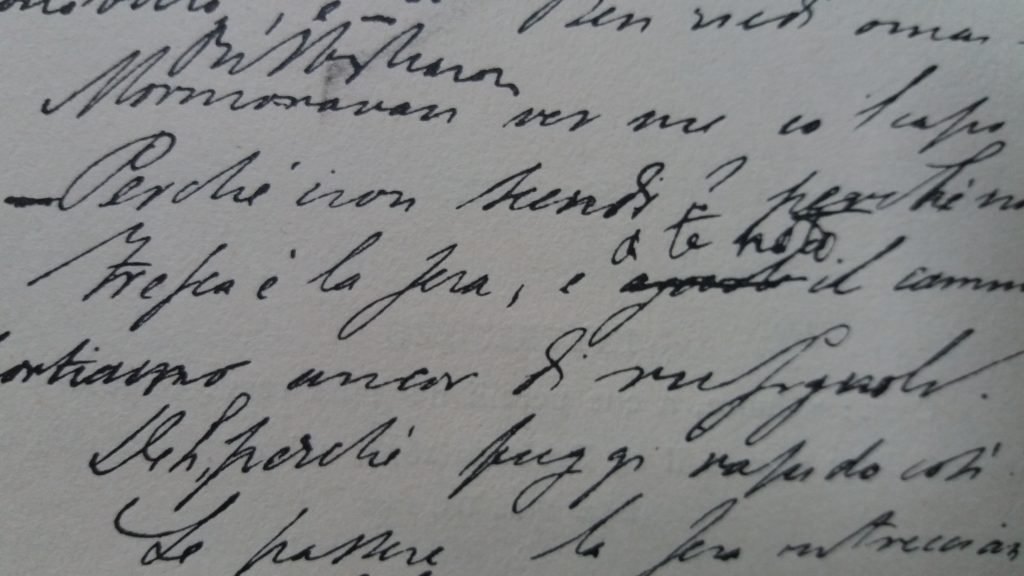 Ben riedi omai -
Bisbigliaron
Mormoravan ver me co 'l capo
— Perché non scendi? perché n
a te noto
Fresca è la sera, e il camm
ortiamo ancor di rusignoli.
Deh, perché fuggi rapido così
Le passere la sera intreccian